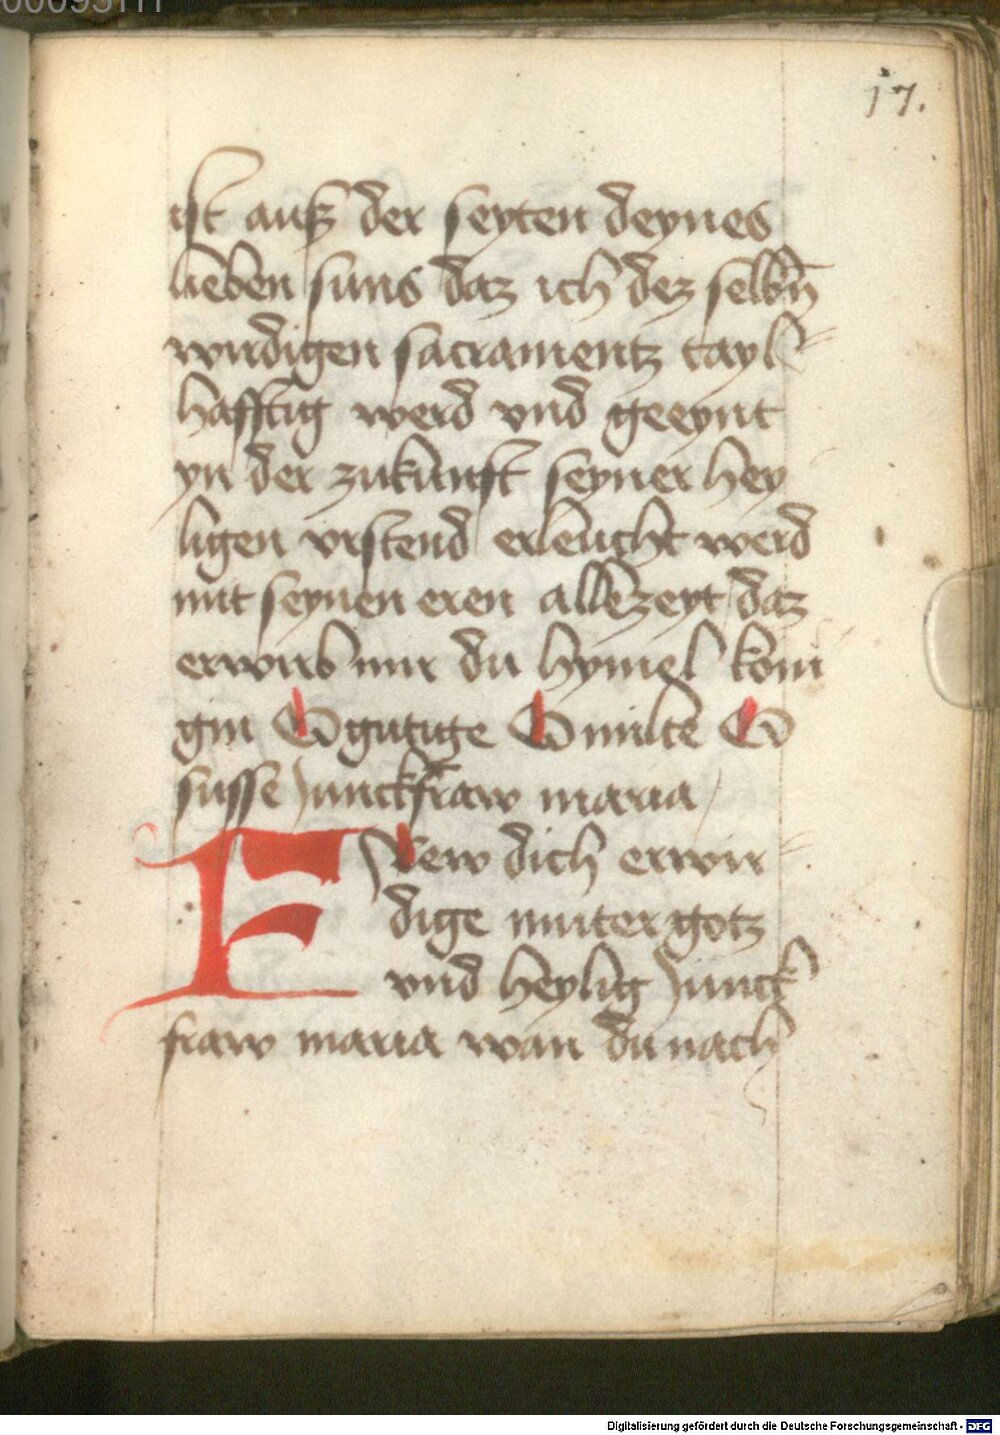 17.
ist auß der seyten deynes
lieben suns daz ich dez selbn̄
wirdigen sacramentz tayl-
hafftig werd vnd geeynt
yn der zukunft seyner hey
ligen vrstend erleucht werd
mit seynen eren allezeyt daz
erwirb mir du hymel kom
gin O gutige O milte O
susse Junckfraw maria
FRew dich erwir-
dige muter gotz
vnd heylig Junck
fraw maria wan du nach
Digitalisierung gefördert durch die Deutsche Forschungsgemeinschaft - DFG